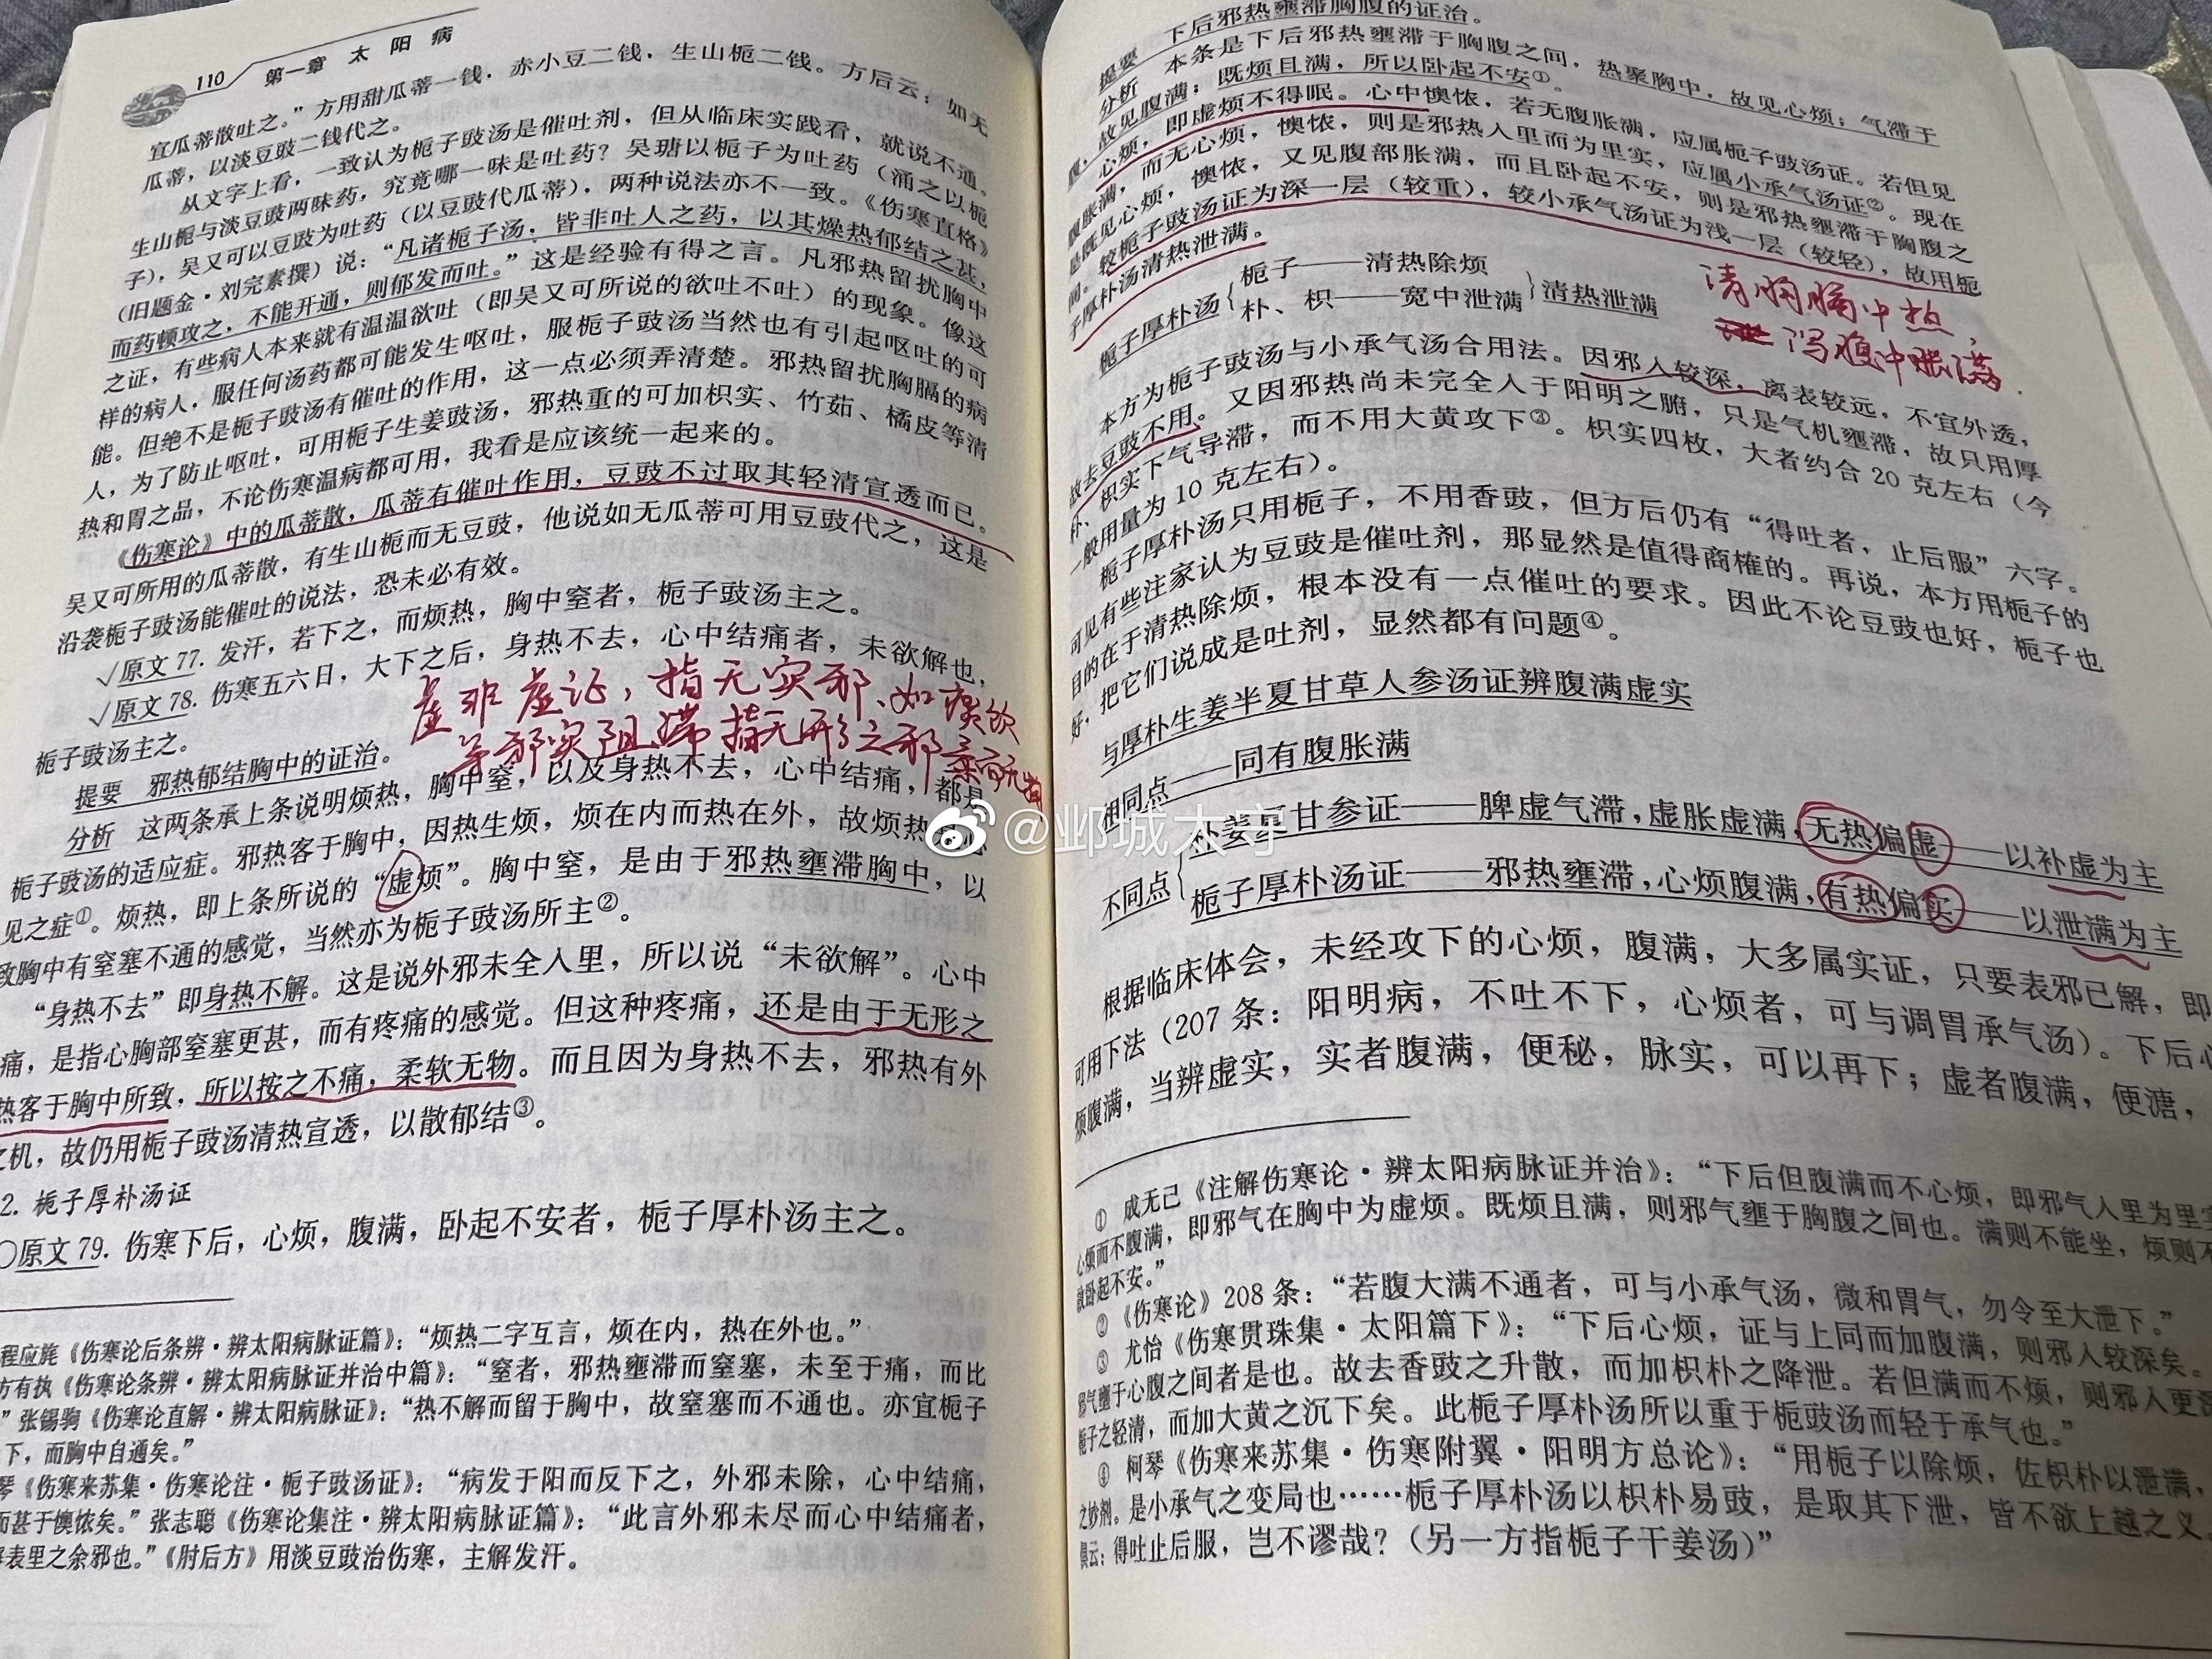 110 第一章 太阳病
宜瓜蒂散吐之。”方用甜瓜蒂一钱,赤小豆二钱,生山栀二钱。方后云:如无
瓜蒂,以淡豆豉二钱代之。
从文字上看,一致认为栀子豉汤是催吐剂,但从临床实践看,就说不通。
生山栀与淡豆豉两味药,究竟哪一味是吐药?吴瑭以栀子为吐药(涌之以栀
子),吴又可以豆豉为吐药(以豆豉代瓜蒂),两种说法亦不一致。《伤寒直格》
(旧题金·刘完素撰)说:“凡诸栀子汤,皆非吐人之药,以其燥热郁结之甚,
而药顿攻之,不能开通,则郁发而吐。”这是经验有得之言。凡邪热留扰胸中
之证,有些病人本来就有温温欲吐(即吴又可所说的欲吐不吐)的现象。像这
样的病人,服任何汤药都可能发生呕吐,服栀子豉汤当然也有引起呕吐的可
能。但绝不是栀子豉汤有催吐的作用,这一点必须弄清楚。邪热留扰胸膈的病
人,为了防止呕吐,可用栀子生姜豉汤,邪热重的可加枳实、竹茹、橘皮等清
热和胃之品,不论伤寒温病都可用,我看是应该统一起来的。
《伤寒论》中的瓜蒂散,瓜蒂有催吐作用,豆豉不过取其轻清宣透而已。
吴又可所用的瓜蒂散,有生山栀而无豆豉,他说如无瓜蒂可用豆豉代之,这是
沿袭栀子豉汤能催吐的说法,恐未必有效。
√原文77. 发汗,若下之,而烦热,胸中窒者,栀子豉汤主之。
√原文78. 伤寒五六日,大下之后,身热不去,心中结痛者,未欲解也,
栀子豉汤主之。
虚非虚证,指无实邪、如痰饮
等邪实阻滞 指无形之邪
提要 邪热郁结胸中的证治。
分析 这两条承上条说明烦热,胸中窒,以及身热不去,心中结痛,都是
栀子豉汤的适应症。邪热客于胸中,因热生烦,烦在内而热在外,故烦热
见之症①。烦热,即上条所说的“虚烦”。胸中窒,是由于邪热壅滞胸中,以
致胸中有窒塞不通的感觉,当然亦为栀子豉汤所主②。
“身热不去”即身热不解。这是说外邪未全入里,所以说“未欲解”。心中
痛,是指心胸部窒塞更甚,而有疼痛的感觉。但这种疼痛,还是由于无形之
热客于胸中所致,所以按之不痛,柔软无物。而且因为身热不去,邪热有外
之机,故仍用栀子豉汤清热宣透,以散郁结③。
2. 栀子厚朴汤证
○原文79. 伤寒下后,心烦,腹满,卧起不安者,栀子厚朴汤主之。
程应旄《伤寒论后条辨·辨太阳病脉证篇》:“烦热二字互言,烦在内,热在外也。”
方有执《伤寒论条辨·辨太阳病脉证并治中篇》:“窒者,邪热壅滞而窒塞,未至于痛,而比
”张锡驹《伤寒论直解·辨太阳病脉证》:“热不解而留于胸中,故窒塞而不通也。亦宜栀子
下,而胸中自通矣。”
琴《伤寒来苏集·伤寒论注·栀子豉汤证》:“病发于阳而反下之,外邪未除,心中结痛,
而甚于懊憹矣。”张志聪《伤寒论集注·辨太阳病脉证篇》:“此言外邪未尽而心中结痛者,
表里之余邪也。”《肘后方》用淡豆豉治伤寒,主解发汗。
提要 下后邪热壅滞胸腹的证治。
分析 本条是下后邪热壅滞于胸腹之间,热聚胸中,故见心烦;气滞于
腹,故见腹满;既烦且满,所以卧起不安①。
心烦,即虚烦不得眠。心中懊憹,若无腹胀满,应属栀子豉汤证。若但见
腹胀满,而无心烦,懊憹,则是邪热入里而为里实,应属小承气汤证②。现在
是既见心烦,懊憹,又见腹部胀满,而且卧起不安,则是邪热壅滞于胸腹之
间。较栀子豉汤证为深一层(较重),较小承气汤证为浅一层(较轻),故用栀
子厚朴汤清热泄满。
栀子厚朴汤{栀子——清热除烦
朴、枳——宽中泄满}清热泄满
清胸膈中热,
泻腹中胀满.
本方为栀子豉汤与小承气汤合用法。因邪入较深,离表较远,不宜外透,
故去豆豉不用。又因邪热尚未完全入于阳明之腑,只是气机壅滞,故只用厚
朴、枳实下气导滞,而不用大黄攻下③。枳实四枚,大者约合20克左右(今
一般用量为10克左右)。
栀子厚朴汤只用栀子,不用香豉,但方后仍有“得吐者,止后服”六字。
可见有些注家认为豆豉是催吐剂,那显然是值得商榷的。再说,本方用栀子的
目的在于清热除烦,根本没有一点催吐的要求。因此不论豆豉也好,栀子也
好,把它们说成是吐剂,显然都有问题④。
与厚朴生姜半夏甘草人参汤证辨腹满虚实
相同点——同有腹胀满
不同点{朴姜夏甘参证——脾虚气滞,虚胀虚满,无热偏虚——以补虚为主
栀子厚朴汤证——邪热壅滞,心烦腹满,有热偏实——以泄满为主
根据临床体会,未经攻下的心烦,腹满,大多属实证,只要表邪已解,即
可用下法(207条:阳明病,不吐不下,心烦者,可与调胃承气汤)。下后心
烦腹满,当辨虚实,实者腹满,便秘,脉实,可以再下;虚者腹满,便溏,
① 成无己《注解伤寒论·辨太阳病脉证并治》:“下后但腹满而不心烦,即邪气入里为里实
心烦而不腹满,即邪气在胸中为虚烦。既烦且满,则邪气壅于胸腹之间也。满则不能坐,烦则不
故卧起不安。”
② 《伤寒论》208条:“若腹大满不通者,可与小承气汤,微和胃气,勿令至大泄下。”
③ 尤怡《伤寒贯珠集·太阳篇下》:“下后心烦,证与上同而加腹满,则邪入较深矣。
邪气壅于心腹之间者是也。故去香豉之升散,而加枳朴之降泄。若但满而不烦,则邪入更深
栀子之轻清,而加大黄之沉下矣。此栀子厚朴汤所以重于栀豉汤而轻于承气也。”
④ 柯琴《伤寒来苏集·伤寒附翼·阳明方总论》:“用栀子以除烦,佐枳朴以泄满,
之妙剂。是小承气之变局也……栀子厚朴汤以枳朴易豉,是取其下泄,皆不欲上越之义
俱云:得吐止后服,岂不谬哉?(另一方指栀子干姜汤)”
@邺城大宇